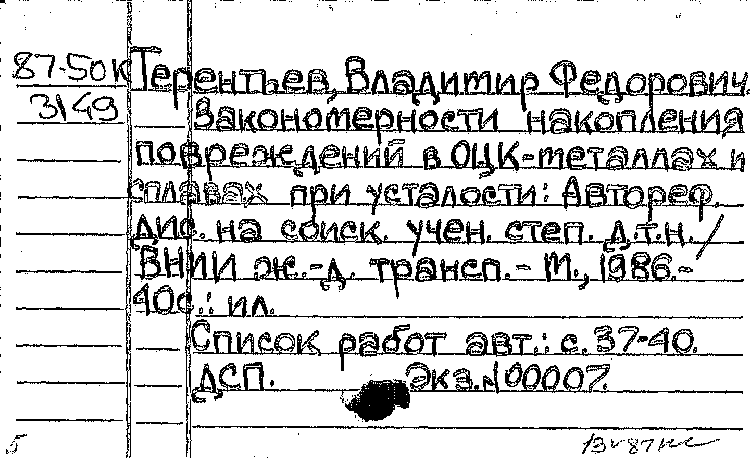 87-50к Терентьев, Владимир Федорович.
3149 Закономерности накопления
повреждений в ОЦК-металлах и
сплавах при усталости: Автореф.
дис. на соиск. учен. степ. д.т.н./
ВНИИ ж.-д. трансп. - М., 1986.-
40с.: ил.
Список работ авт.: с. 37-40.
ДСП. Экз. №00007.
5